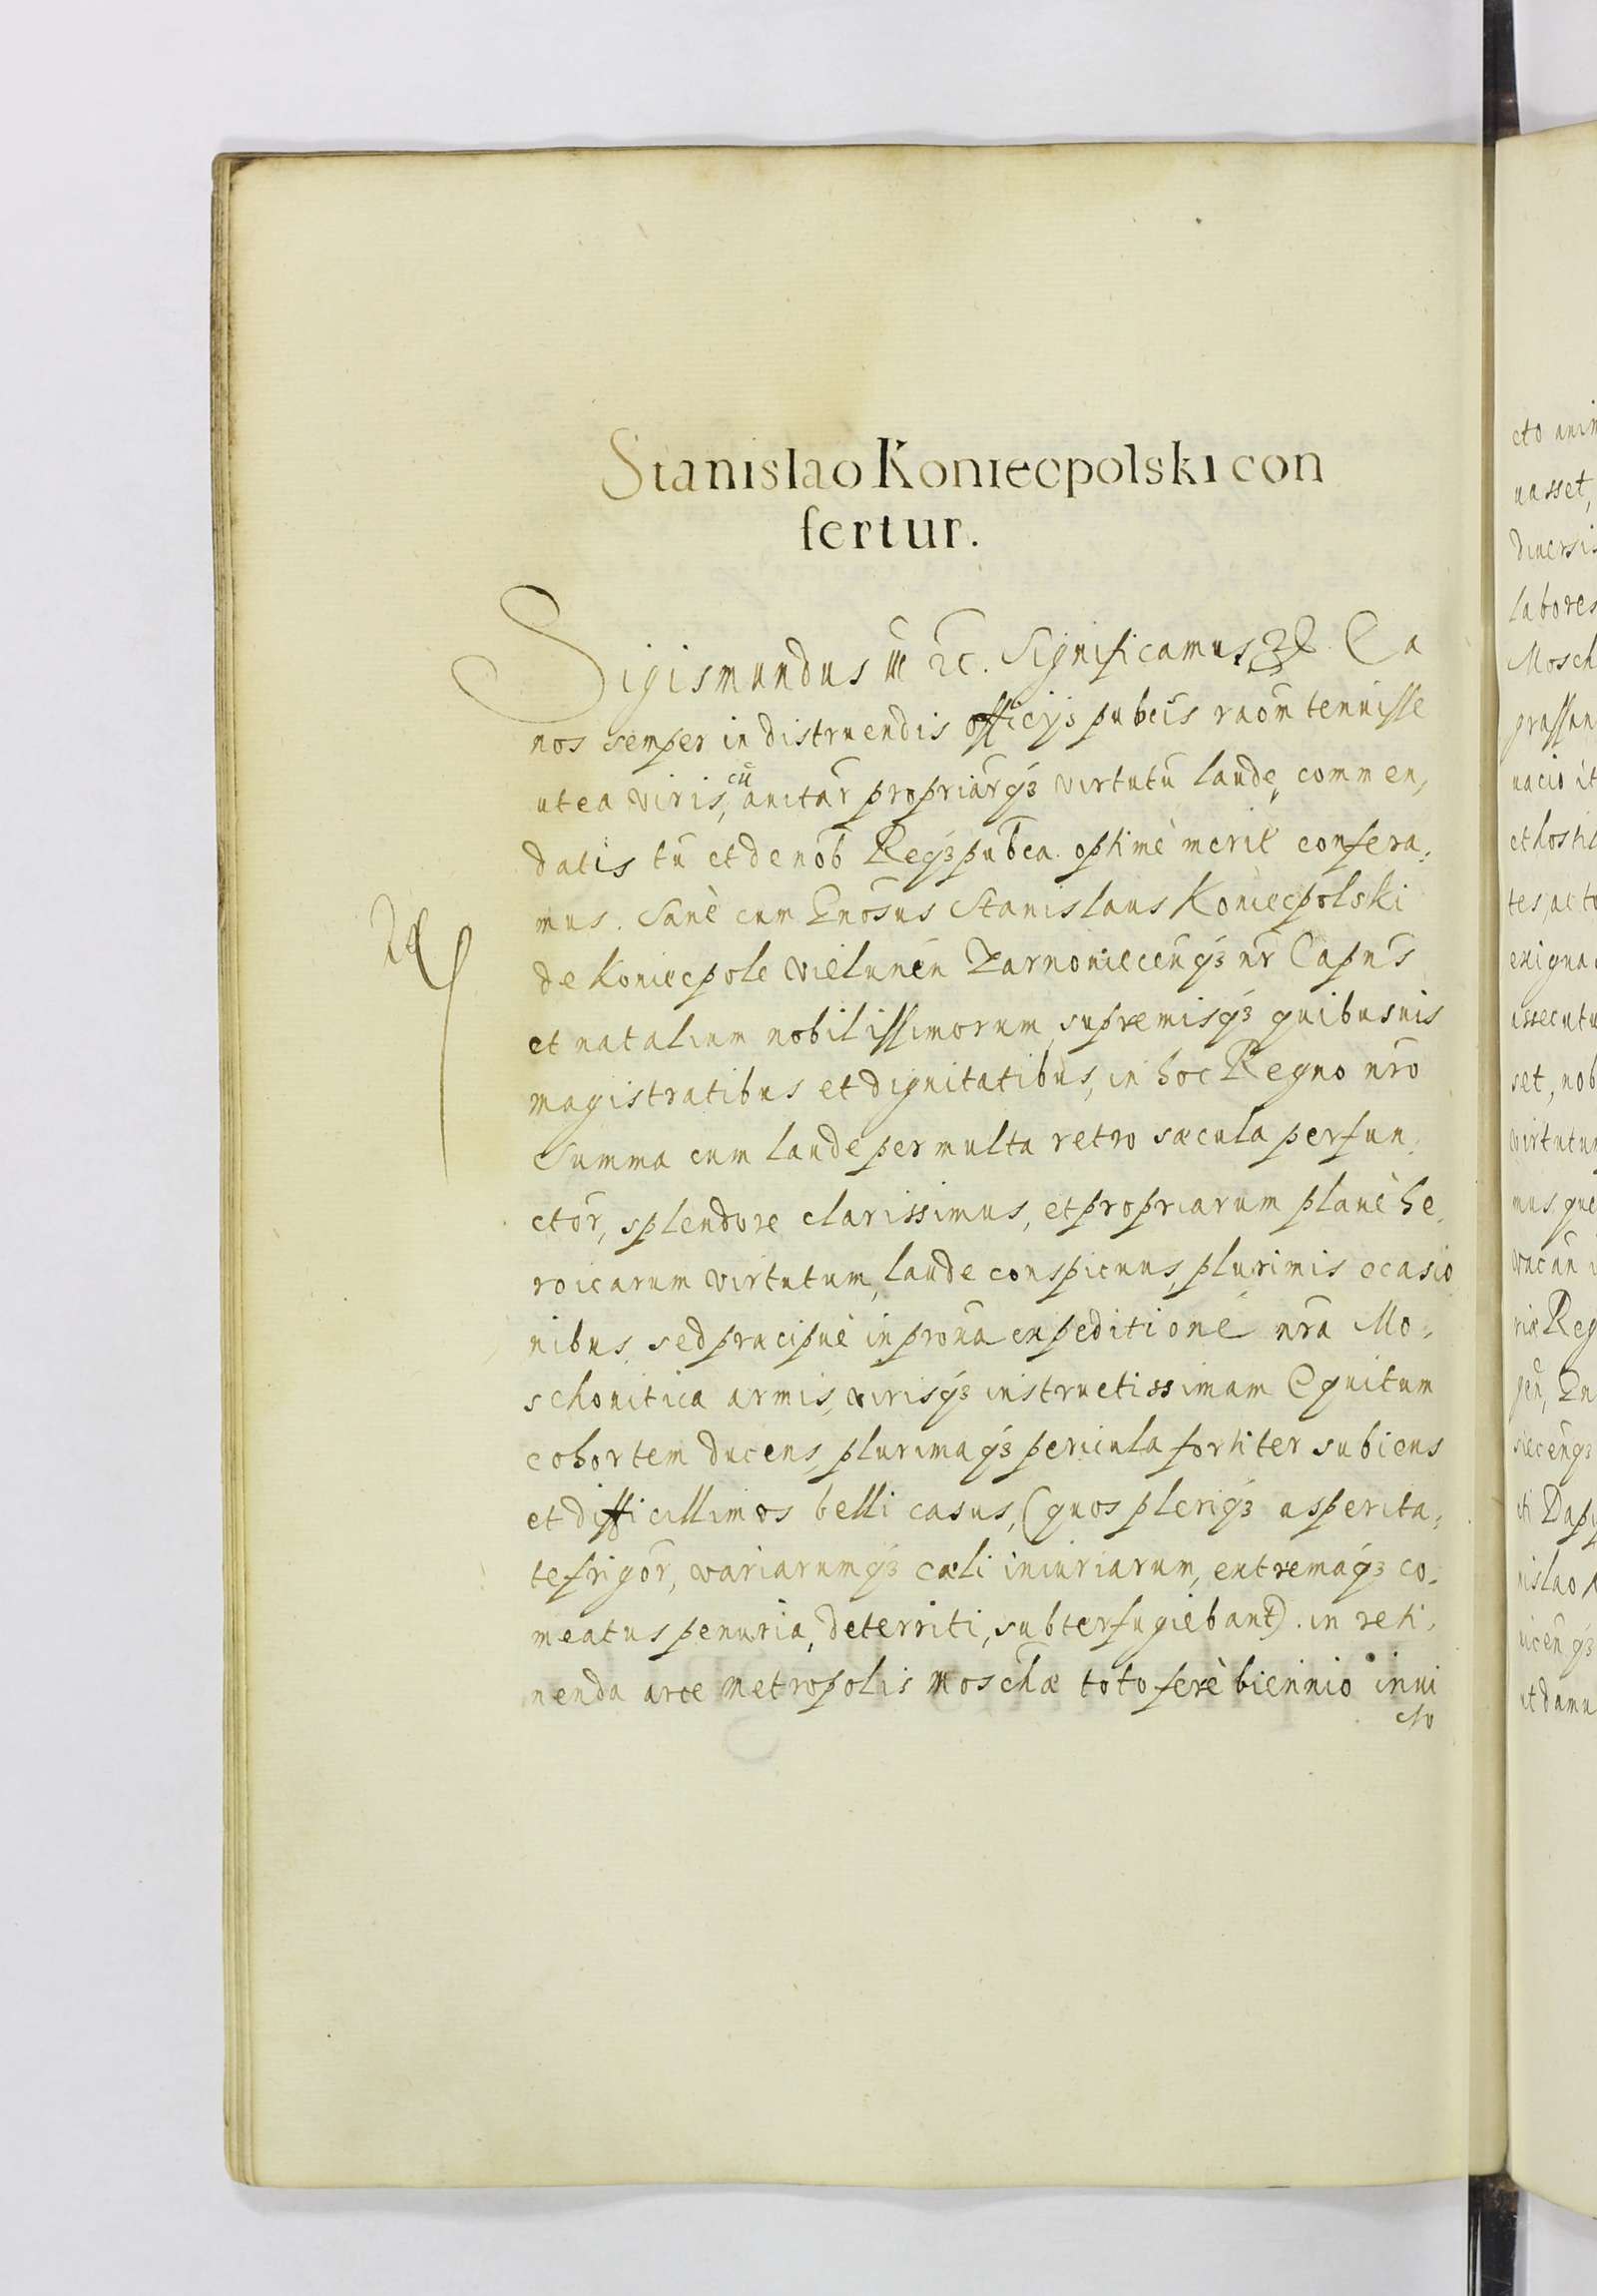 Stanislao Koniecpolski con
fertur.
Sigismundus III etc. Significamus etc. Ea
nos semper in distruendis officijs pubcis raom tenuisse
ut ea viris, cū auitar propriarqȝ virtutū laude, commen,
datis tū et de nob Reqȝ pubca optimè merit confera,
mus. Sanè cum Gnosus Stanislaus Koniecpolski
de Koniecpole Vielunen Zarnoniecenqȝ nr Capn̄s
et natalium nobilissimorum, supremisqȝ quibusuis
magistratibus et dignitatibus, in hoc Regno nro
Summa cum laude per multa retro sæcula perfun,
ctor, splendore clarissimus, et propriarum planè he,
roicarum virtutum, laude conspicuus, plurimis ocasio
nibus, sed præcipuè in expeditione nra Mo,
schouitica armis, virisqȝ instructissimam Equitum
cohortem ducens, plurimaqȝ pericula fortiter subiens
et difficillimos belli casus, (quos pleriqȝ asperita,
te frigor, variarumqȝ cæli iniuriarum, extremaqȝ co,
meatus penuria, deterriti, subterfugiebant). in reti,
nenda arce Metropolis Moschæ toto ferè biennio inui
cto
cto ani
uasset,
diuersis
labores
Mosch
grassan
uacio it
et hosti
tes, ac to
exigua
assecutu
set, nob
virtutu
mus, que
vacan i
riæ Reg
gen, Gn
siecenqȝ
ti Dapi
nislao
uicenqȝ
ut damu